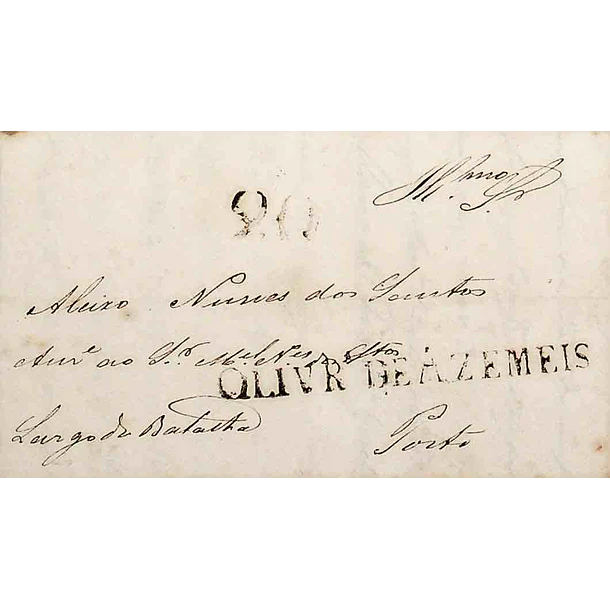 Ill.mo Sr.
20
Aleixo Nunes dos Santos
ao Sr. M.el N.es dos Stos
OLIVR DE AZEMEIS
Largo da Batalha
Porto